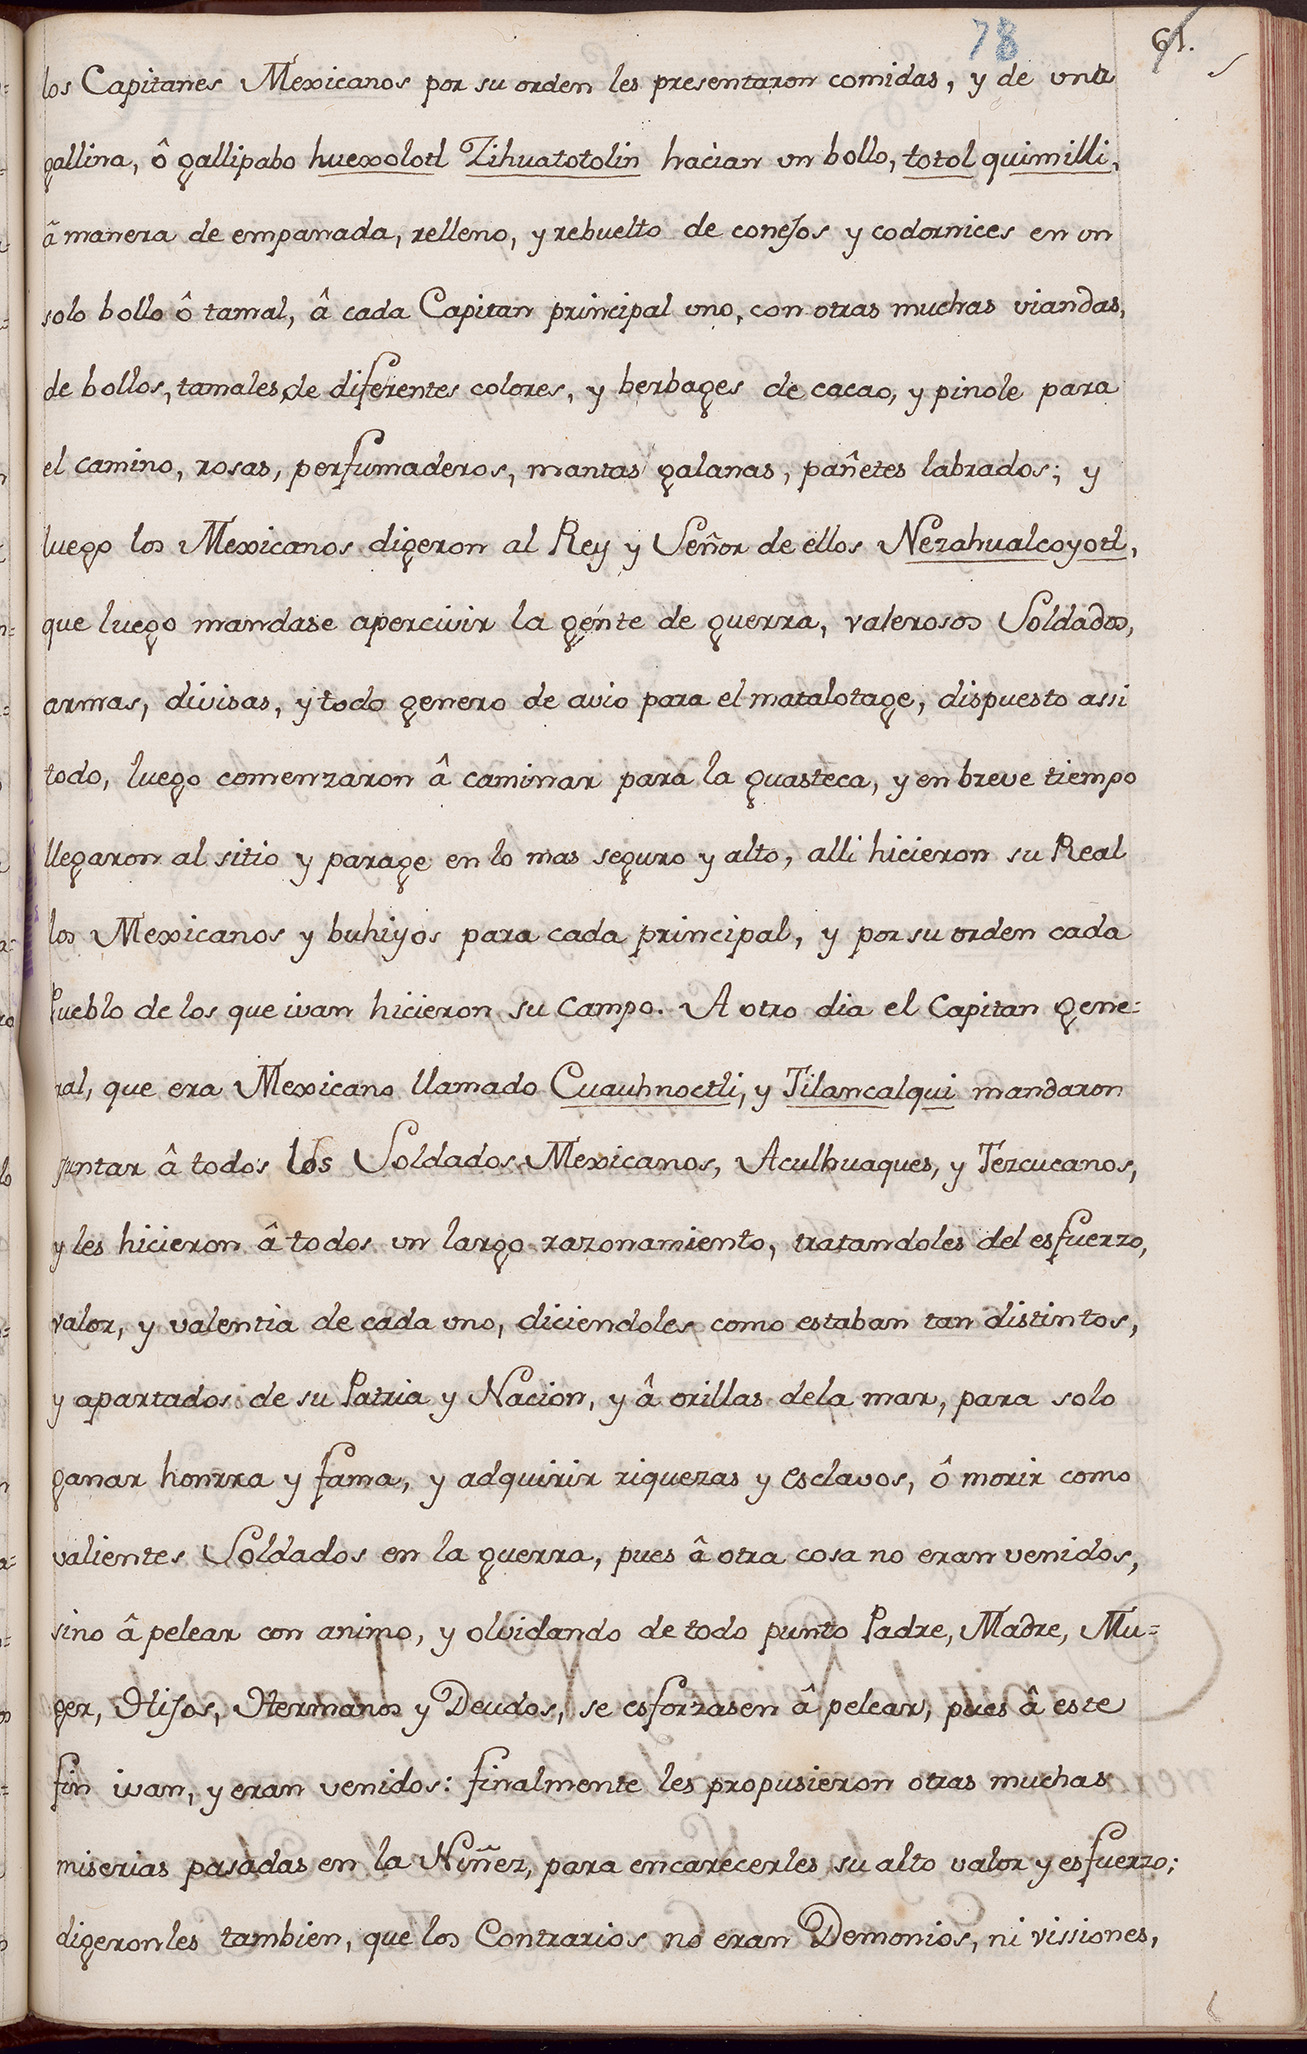 78 61.
los Capitanes Mexicanos por su orden les presentaron comidas, y de una
gallina, ô gallipabo huexolotl Zihuatotolin hacian un bollo, totol quimilli,
â manera de empanada, relleno, y rebuelto de conejos y codornices en un
solo bollo ô tamal, â cada Capitan principal uno, con otras muchas viandas,
de bollos, tamales de diferentes colores, y berbages de cacao, y pinole para
el camino, rosas, perfumaderos, mantas galanas, pañetes labrados; y
luego los Mexicanos digeron al Rey y Señor de ellos Nezahualcoyotl,
que luego mandase apercivir la gente de guerra, valerosos Soldados,
armas, divisas, y todo genero de avio para el matalotage, dispuesto assi
todo, luego comenzaron â caminar para la guasteca, y en breve tiempo
llegaron al sitio y parage en lo mas seguro y alto, alli hicieron su Real
los Mexicanos y buhiyos para cada principal, y por su orden cada
Pueblo de los que ivan hicieron su campo. A otro dia el Capitan gene=
ral, que era Mexicano llamado Cuauhnoctli, y Tilancalqui mandaron
juntar â todos los Soldados Mexicanos, Aculhuaques, y Tezcucanos,
y les hicieron â todos un largo razonamiento, tratandoles del esfuerzo,
valor, y valentia de cada uno, diciendoles como estaban tan distintos,
y apartados de su Patria y Nacion, y â orillas dela mar, para solo
ganar honrra y fama, y adquirir riquezas y esclavos, ô morir como
valientes Soldados en la guerra, pues â otra cosa no eran venidos,
sino â pelear con animo, y olvidando de todo punto Padre, Madre, Mu=
ger, Hijos, Hermanos y Deudos, se esforzasen â pelear, pues â este
fin ivan, y eran venidos: finalmente les propusieron otras muchas
miserias pasadas en la Niñez, para encarecerles su alto valor y esfuerzo;
digeronles tambien, que los Contrarios no eran Demonios, ni vissiones,